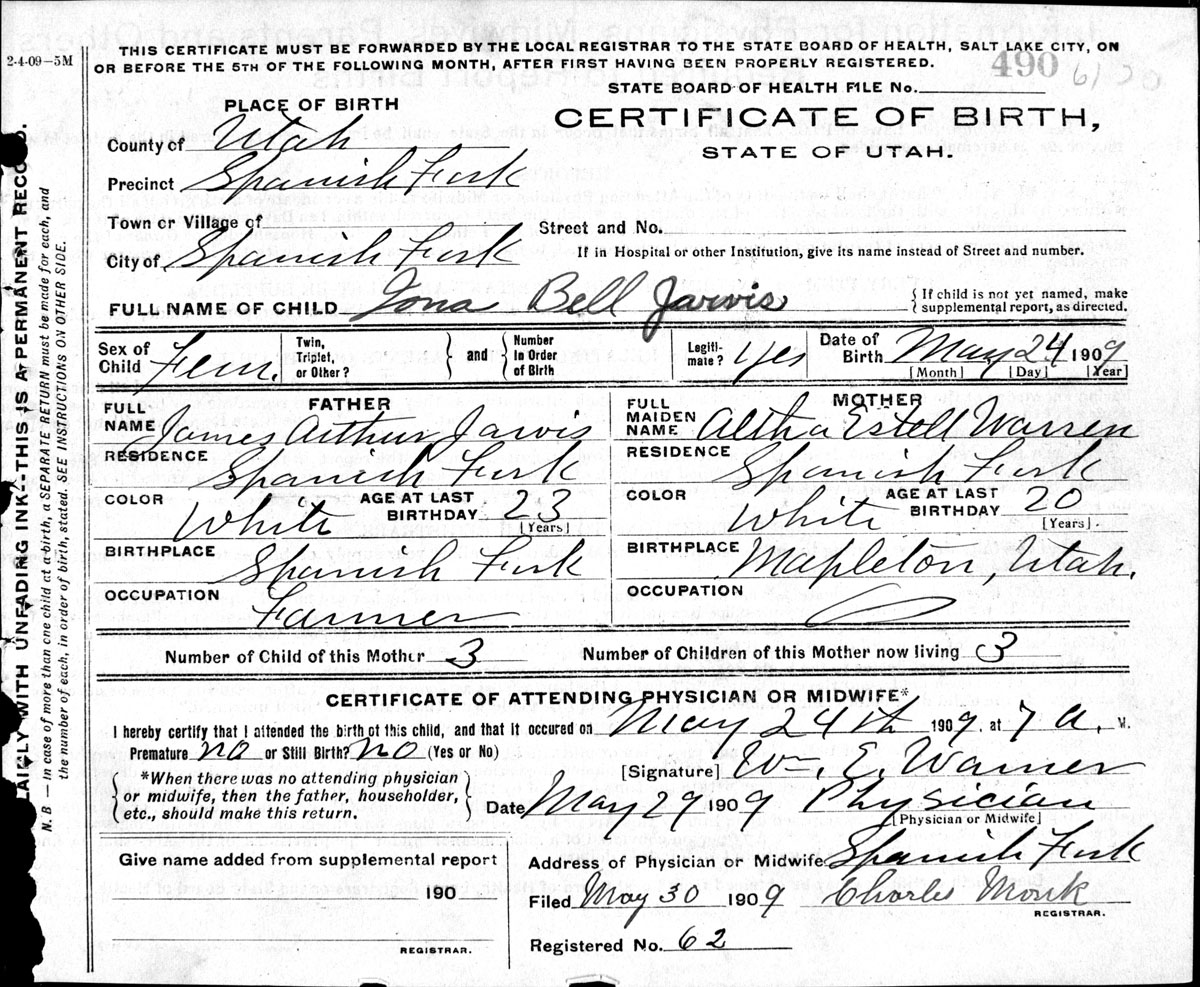 THIS CERTIFICATE MUST BE FORWARDED BY THE LOCAL REGISTRAR TO THE STATE BOARD OF HEALTH, SALT LAKE CITY, ON
2-4-09-5M
OR BEFORE THE 5TH OF THE FOLLOWING MONTH, AFTER FIRST HAVING BEEN PROPERLY REGISTERED.
490 6120
STATE BOARD OF HEALTH FILE No.
PLACE OF BIRTH
CERTIFICATE OF BIRTH,
STATE OF UTAH.
County of Utah
Precinct Spanish Fork
Town or Village of
Street and No.
City of Spanish Fork
If in Hospital or other Institution, give its name instead of Street and number.
FULL NAME OF CHILD Iona Bell Jarvis
{If child is not yet named, make
supplemental report, as directed.
Sex of Child Fem.
Twin, Triplet, or Other?
} and {
Number in Order of Birth
Legiti-mate? Yes
Date of Birth May 24 1909
[Month] [Day] [Year]
FATHER
FULL NAME James Arthur Jarvis
RESIDENCE Spanish Fork
COLOR White AGE AT LAST BIRTHDAY 23
[Years]
BIRTHPLACE Spanish Fork
OCCUPATION Farmer
MOTHER
FULL MAIDEN NAME Altha Estell Warren
RESIDENCE Spanish Fork
COLOR White AGE AT LAST BIRTHDAY 20
[Years].
BIRTHPLACE Mapleton, Utah.
OCCUPATION
Number of Child of this Mother 3 Number of Children of this Mother now living 3
CERTIFICATE OF ATTENDING PHYSICIAN OR MIDWIFE*
I hereby certify that I attended the birth of this child, and that it occured on May 24th 1909. at 7 A. M.
Premature no or Still Birth? no (Yes or No)
[Signature] Wm. E. Warner
{*When there was no attending physician
or midwife, then the father, householder,
etc., should make this return.}
Date May 29 1909 Physician
[Physician or Midwife]
Give name added from supplemental report
190
REGISTRAR.
Address of Physician or Midwife Spanish Fork
Filed May 30 1909 Charles Monk
REGISTRAR.
Registered No. 62
AINLY WITH UNFADING INK--THIS IS A PERMANENT RECORD.
N. B — In case of more than one child at a birth, a SEPARATE RETURN must be made for each, and
the number of each, in order of birth, stated. SEE INSTRUCTIONS ON OTHER SIDE.